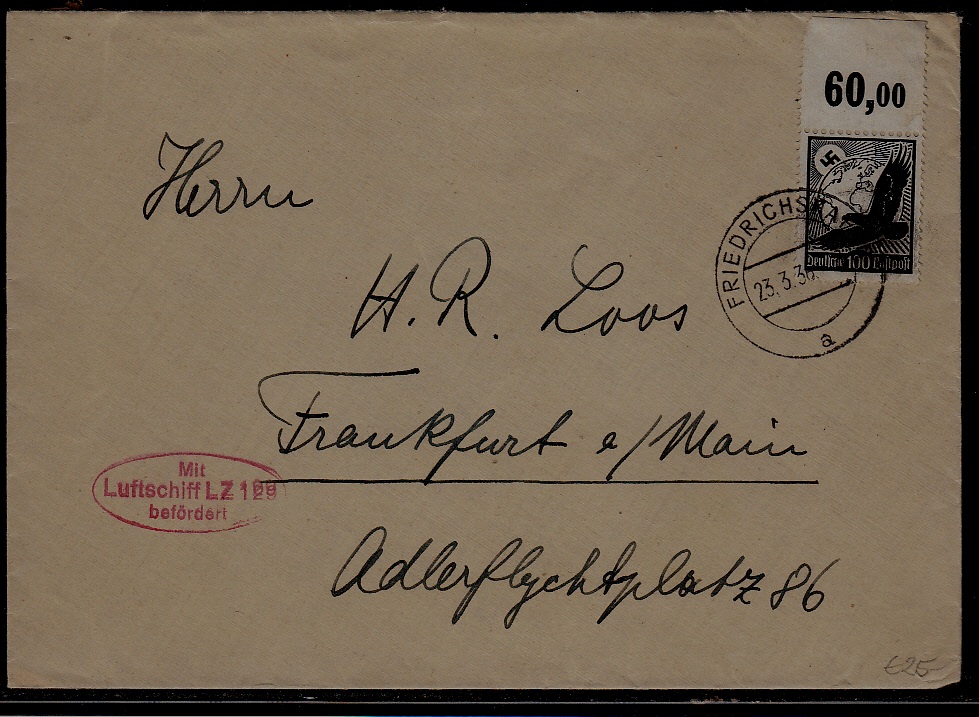 60,00
Deutsche 100 Luftpost
FRIEDRICHSHA
23.3.36
a
Herrn
H. R. Loos
Frankfurt a/Main
Mit
Luftschiff LZ 129
befördert
Adlerflychtplatz 86
€25